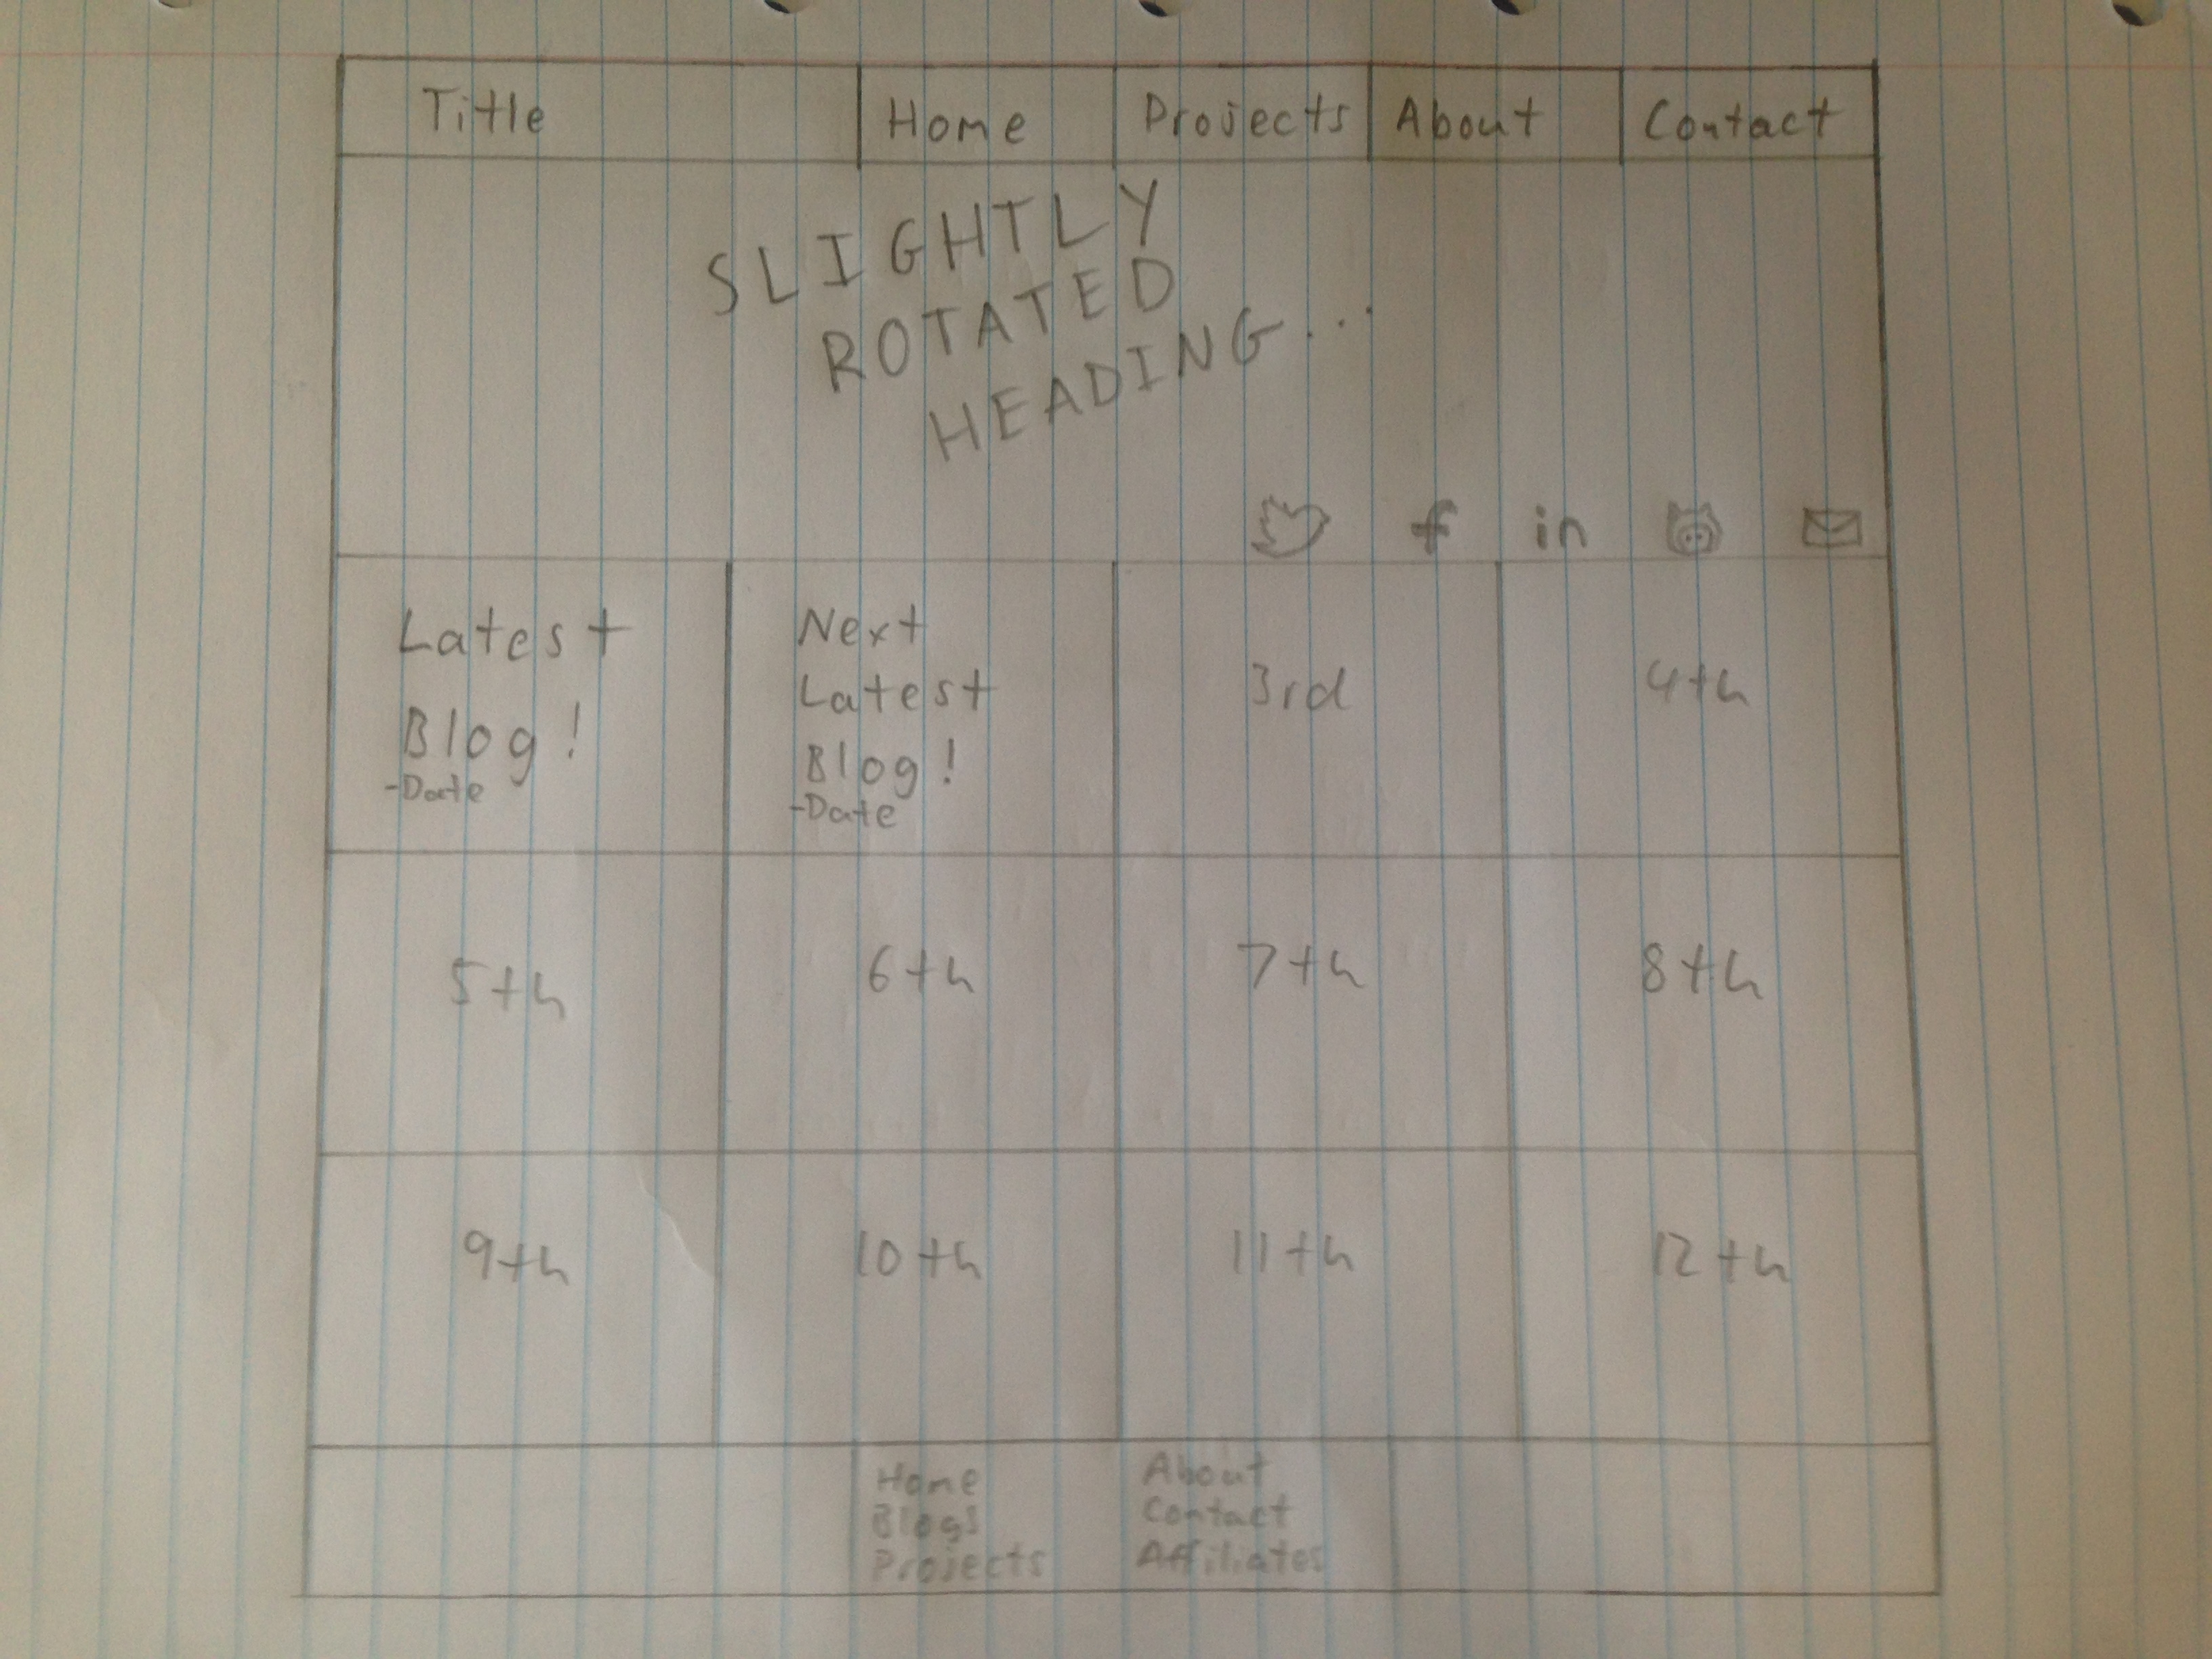 Title Home Projects About Contact
SLIGHTLY
ROTATED
HEADING...
f in
Latest
Blog!
-Date
Next
Latest
Blog!
-Date
3rd
4th
5th
6th
7th
8th
9th
10th
11th
12th
Home
Blogs
Projects
About
Contact
Affiliates